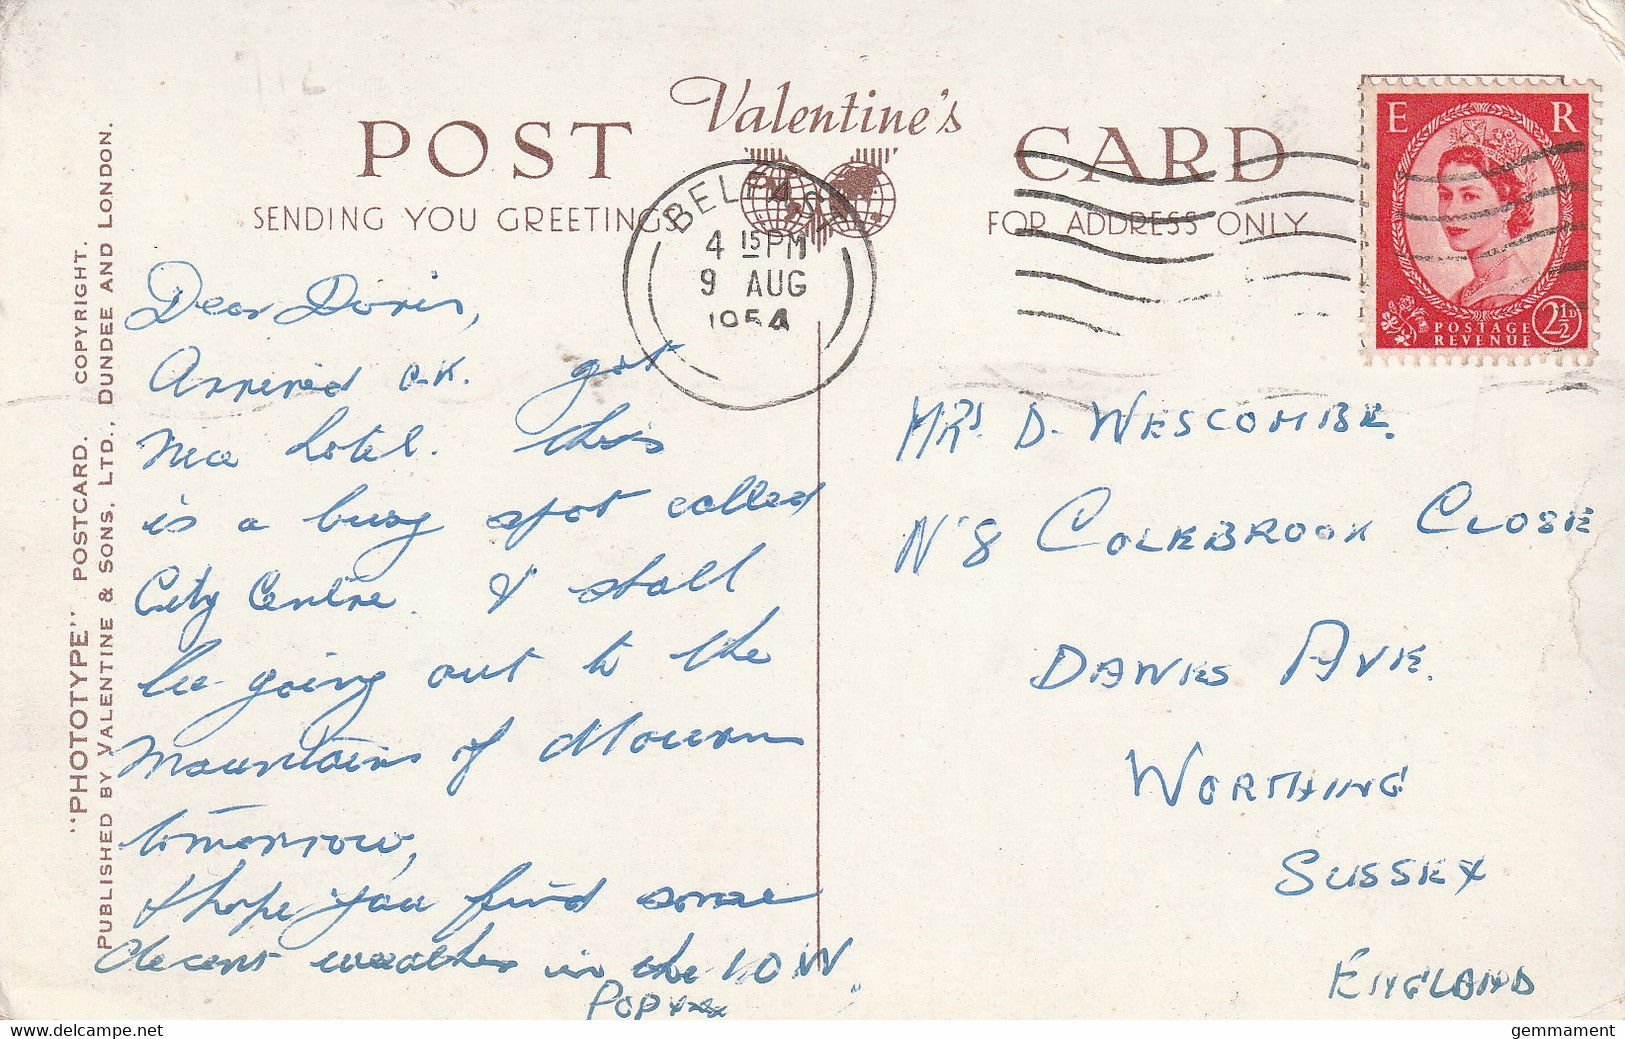 POST Valentine's CARD
SENDING YOU GREETINGS
FOR ADDRESS ONLY
BELFAST
4 15 PM
9 AUG
1954
E R
POSTAGE
REVENUE
2½D
"PHOTOTYPE" POSTCARD. COPYRIGHT.
PUBLISHED BY VALENTINE & SONS, LTD., DUNDEE AND LONDON.
Dear Doris,
Arrived O.K. got
nice hotel. this
is a busy spot called
City Centre. I shall
be going out to the
Mountains of Mourne
tomorrow,
I hope you find some
decent weather in the I O W.
POP xxx
MRS. D. WESCOMBE.
Nº 8 COLEBROOK CLOSE
DAWES AVE.
WORTHING
SUSSEX
ENGLAND
gemmament